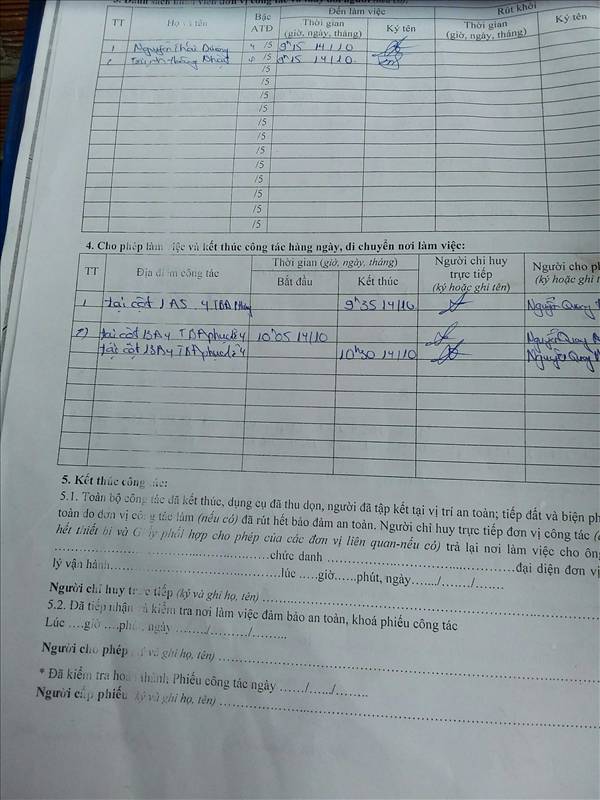 3. Danh sách nhân viên đơn vị công tác và thay đổi người
TT Họ và tên Bậc ATĐ Đến làm việc Rút khỏi
Thời gian (giờ, ngày, tháng) Ký tên Thời gian (giờ, ngày, tháng) Ký tên
1 Nguyễn Thái Dương 4 /5 9h15 14/10
2 Trịnh Hồng Nhật 4 /5 9h15 14/10
/5
/5
/5
/5
/5
/5
/5
/5
/5
/5
/5
/5
4. Cho phép làm việc và kết thúc công tác hàng ngày, di chuyển nơi làm việc:
TT Địa điểm công tác Thời gian (giờ, ngày, tháng) Người chỉ huy trực tiếp (ký hoặc ghi tên) Người cho ph (ký hoặc ghi t
Bắt đầu Kết thúc
1 tại cột 1A5 9h35 14/10 Nguyễn Quang
2) tại cột 13A4 TBA phúc lê 4 10h05 14/10 Nguyễn Quang
tại cột 13A4 TBA phúc lê 4 10h30 14/10 Nguyễn Quang
5. Kết thúc công tác:
5.1. Toàn bộ công tác đã kết thúc, dụng cụ đã thu dọn, người đã tập kết tại vị trí an toàn; tiếp đất và biện ph
toàn do đơn vị công tác làm (nếu có) đã rút hết bảo đảm an toàn. Người chỉ huy trực tiếp đơn vị công tác (
hết thiết bị và Giấy phối hợp cho phép của các đơn vị liên quan-nếu có) trả lại nơi làm việc cho ông
..............................chức danh ..............................đại diện đơn vị
lý vận hành..............................lúc .....giờ......phút, ngày......./......./.......
Người chỉ huy trực tiếp (ký và ghi họ, tên) ..............................
5.2. Đã tiếp nhận và kiểm tra nơi làm việc đảm bảo an toàn, khoá phiếu công tác
Lúc ....giờ ....phút, ngày ......./......./.......
Người cho phép (ký và ghi họ, tên) ..............................
* Đã kiểm tra hoàn thành Phiếu công tác ngày ....../....../.......
Người cấp phiếu (ký và ghi họ, tên) ..............................